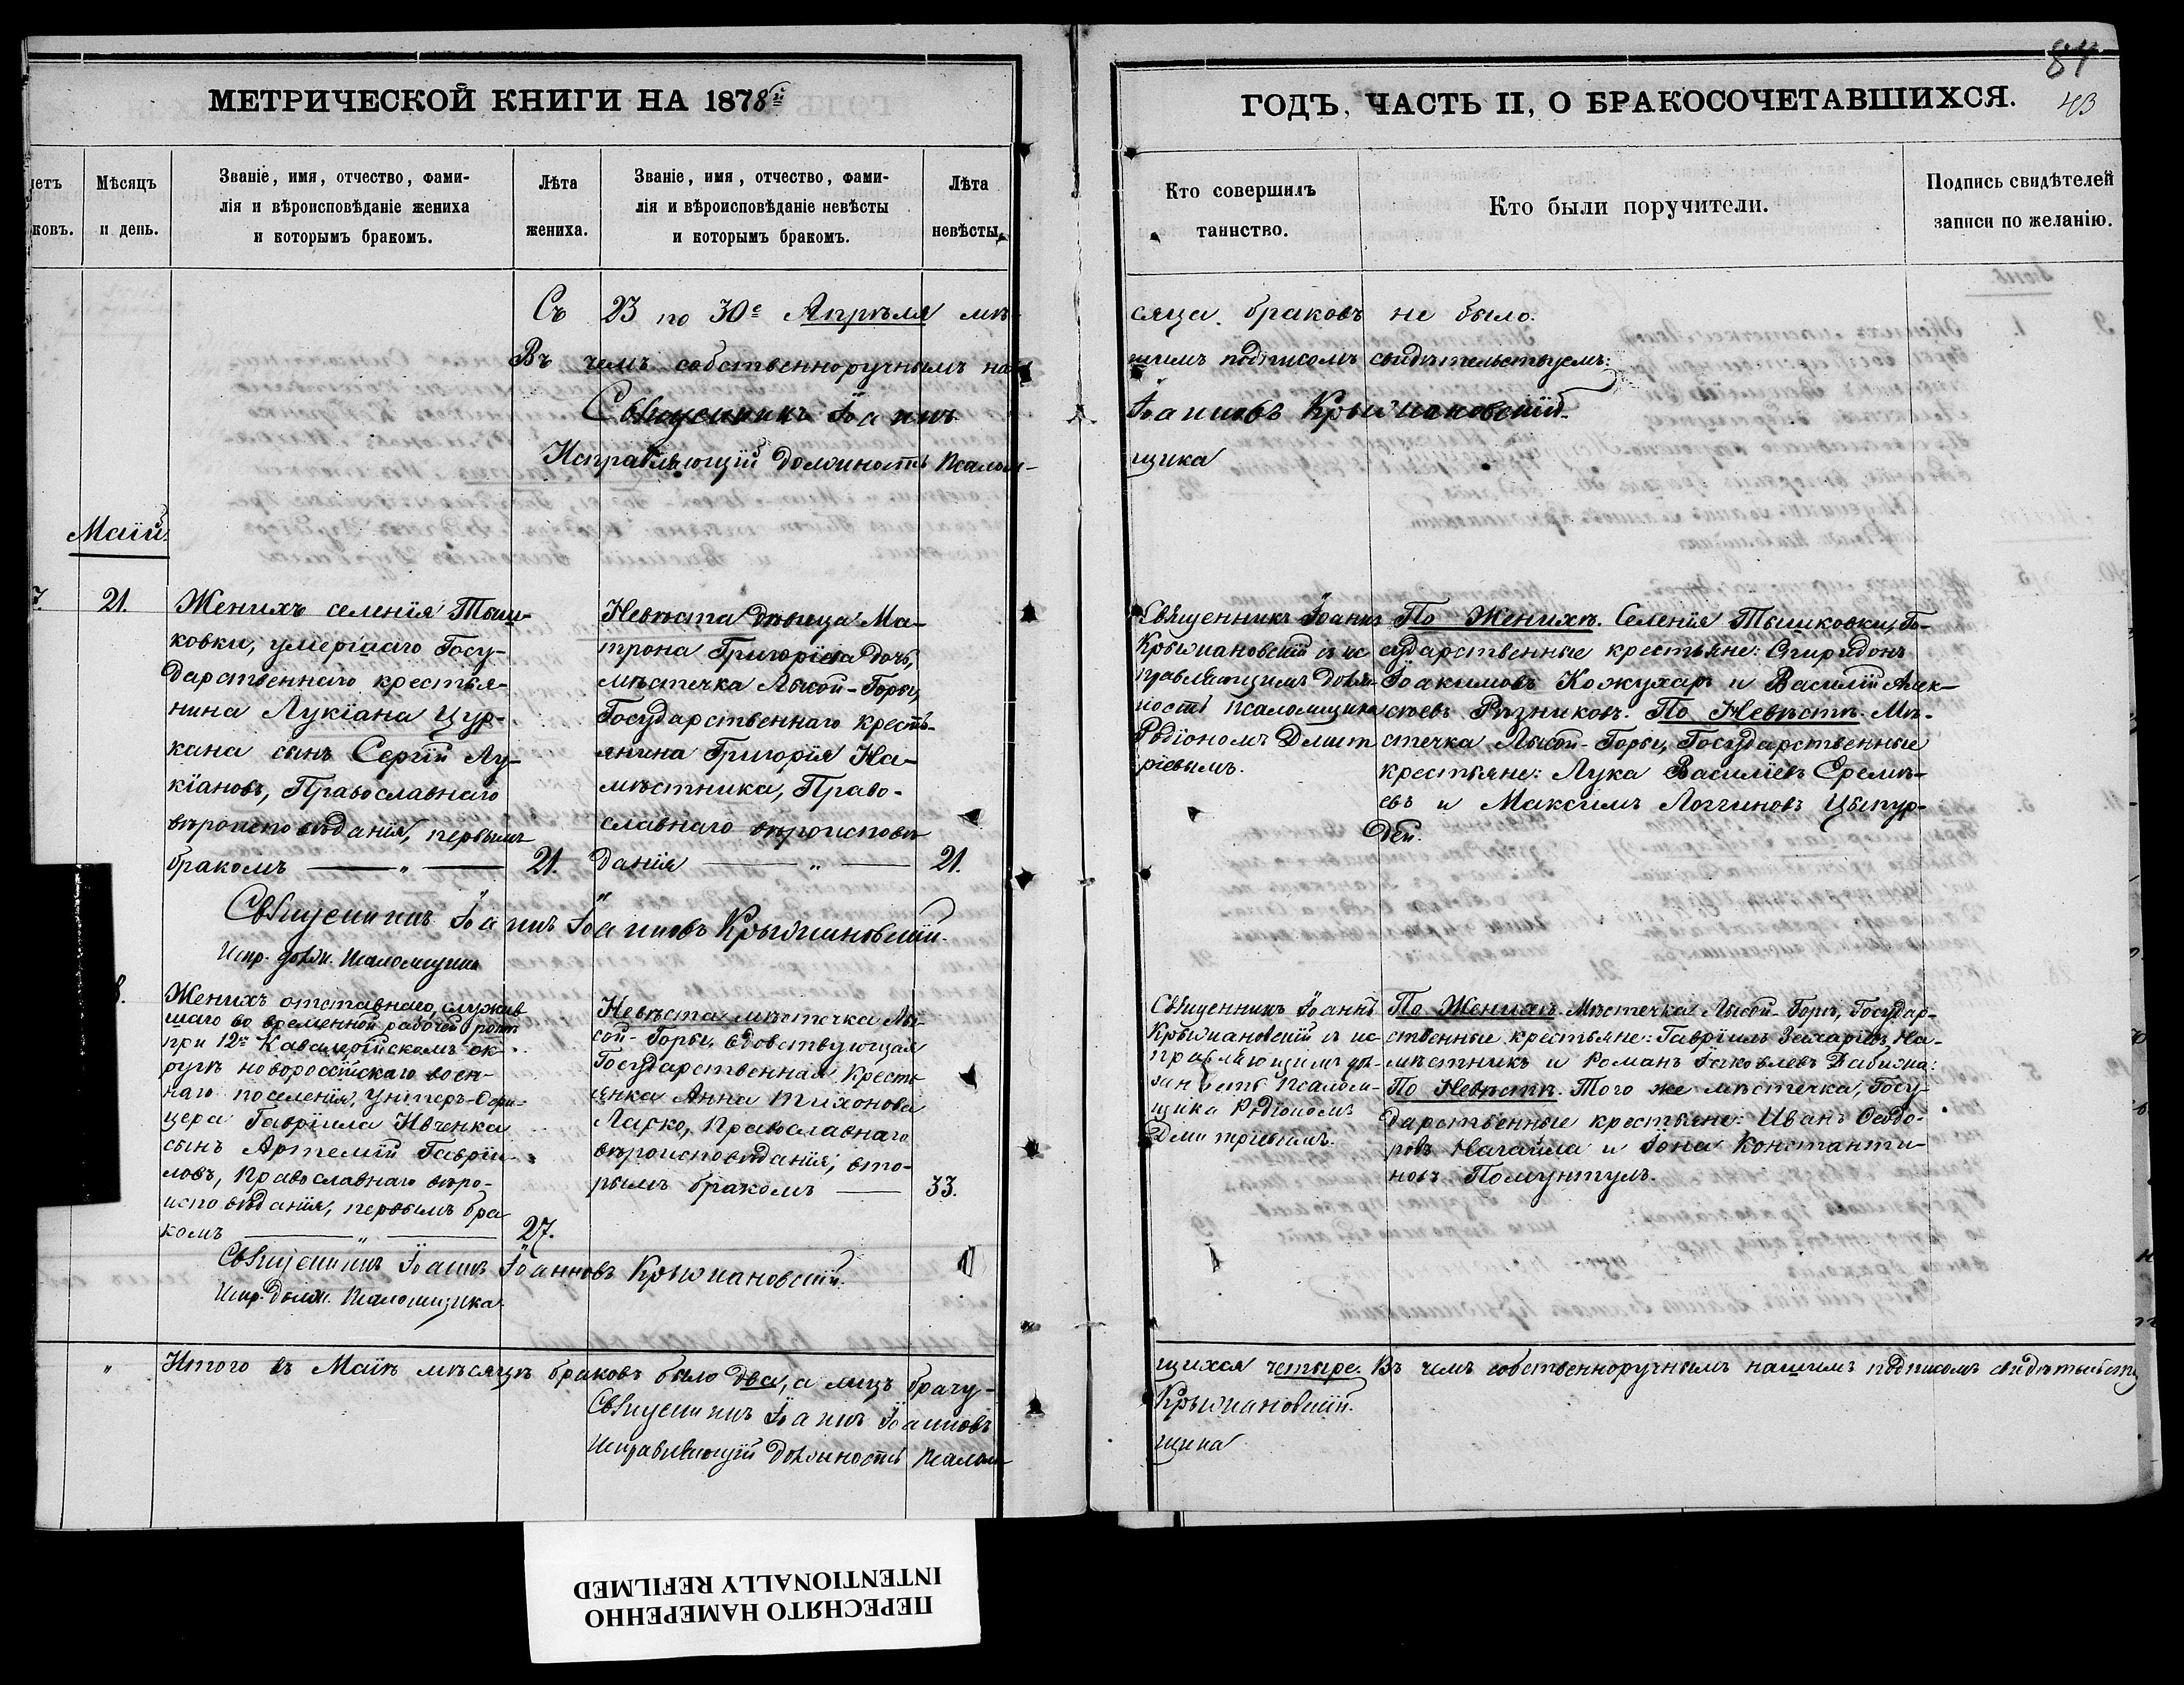 МЕТРИЧЕСКОЙ КНИГИ НА 1878й
ГОДЪ, ЧАСТЬ II, О БРАКОСОЧЕТАВШИХСЯ.
84
43
Мѣсяцъ
и день.
Званіе, имя, отчество, фами-
лія и вѣроисповѣданіе жениха
и которымъ бракомъ.
Лѣта
жениха.
Званіе, имя, отчество, фами-
лія и вѣроисповѣданіе невѣсты
и которымъ бракомъ.
Лѣта
невѣсты.
Кто совершилъ
таинство.
Кто были поручители.
Подпись свидѣтелей
записи по желанію.
Съ 23 по 30е Апрѣля мѣ-
сяца браковъ не было.
Въ чемъ собственноручнымъ на-
шимъ подписомъ свидѣтельствуемъ:
Священникъ Іоаннъ
Іоанновъ Крыжановскій
Исправляющій должность псалом-
щика
Маій
7.
21.
Женихъ селенія Тыш-
ковки, умершаго Госу-
дарственнаго крестья-
нина Лукіана Цур-
кана сынъ Сергій Лу-
кіановъ, Православнаго
вѣроисповѣданія, первымъ
бракомъ — „ —
21.
Невѣста дѣвица Ма-
трона Григоріева дочь,
мѣстечка Лысой-Горы,
Государственнаго кресть-
янина Григорія На-
мѣстника, Право-
славнаго вѣроисповѣ-
данія — „ —
21.
Священникъ Іоаннъ
Крыжановскій съ ис
правляющимъ долж-
ность псаломщика
Родіономъ Дмит
ріевымъ.
По Женихѣ. Селенія Тышковки, Го-
сударственные крестьяне: Спиридонъ
Іоакимовъ Кожухарь и Василій Алек-
сѣевъ Рѣзниковъ. По Невѣстѣ. Мѣ-
стечка Лысой-Горы, Государственные
крестьяне: Лука Василіевъ Еремѣ-
евъ и Максимъ Логгиновъ Цыпур-
дей.
Священникъ Іоаннъ Іоанновъ Крыжановскій.
Испр. долж. Псаломщика
8.
Женихъ отставнаго, служив
шаго во временной рабочей ротѣ
при 12м Кавалерійскомъ ок-
ругѣ новороссійскаго воен-
наго поселенія, Унтеръ-Офи-
цера Гавріила Ивченка
сынъ Артемій Гавріи-
ловъ, Православнаго вѣро-
исповѣданія, первымъ бра
комъ — „ —
27.
Невѣста мѣстечка Лы-
сой-Горы, вдовствующая
Государственная кресть
янка Анна Тихонова
Ларко, Православнаго
вѣроисповѣданія, вто-
рымъ бракомъ —
33.
Священникъ Іоаннъ
Крыжановскій съ ис
правляющимъ дол-
жность псалом-
щика Родіономъ
Дмитріевымъ.
По Женихѣ. Мѣстечка Лысой-Горы, Государ-
ственные крестьяне: Гавріилъ Захаріевъ На-
мѣстникъ и Романъ Іаковлевъ Бабижа:
По Невѣстѣ. Того же мѣстечка, Госу-
дарственные крестьяне: Иванъ Ѳеодо-
ровъ Нагайла и Іона Константи-
новъ Помунтулъ.
Священникъ Іоаннъ Іоанновъ Крыжановскій.
Испр. Долж. Псаломщика
„ Итого въ Маіѣ мѣсяцѣ браковъ было два, а лицъ брачу-
щихся четыре. Въ чемъ собственноручнымъ нашимъ подписомъ свидѣтельств
Священникъ Іоаннъ Іоанновъ
Крыжановскій.
Исправляющій должность псалом-
щика
ПЕРЕСНЯТО НАМЕРЕННО
INTENTIONALLY REFILMED